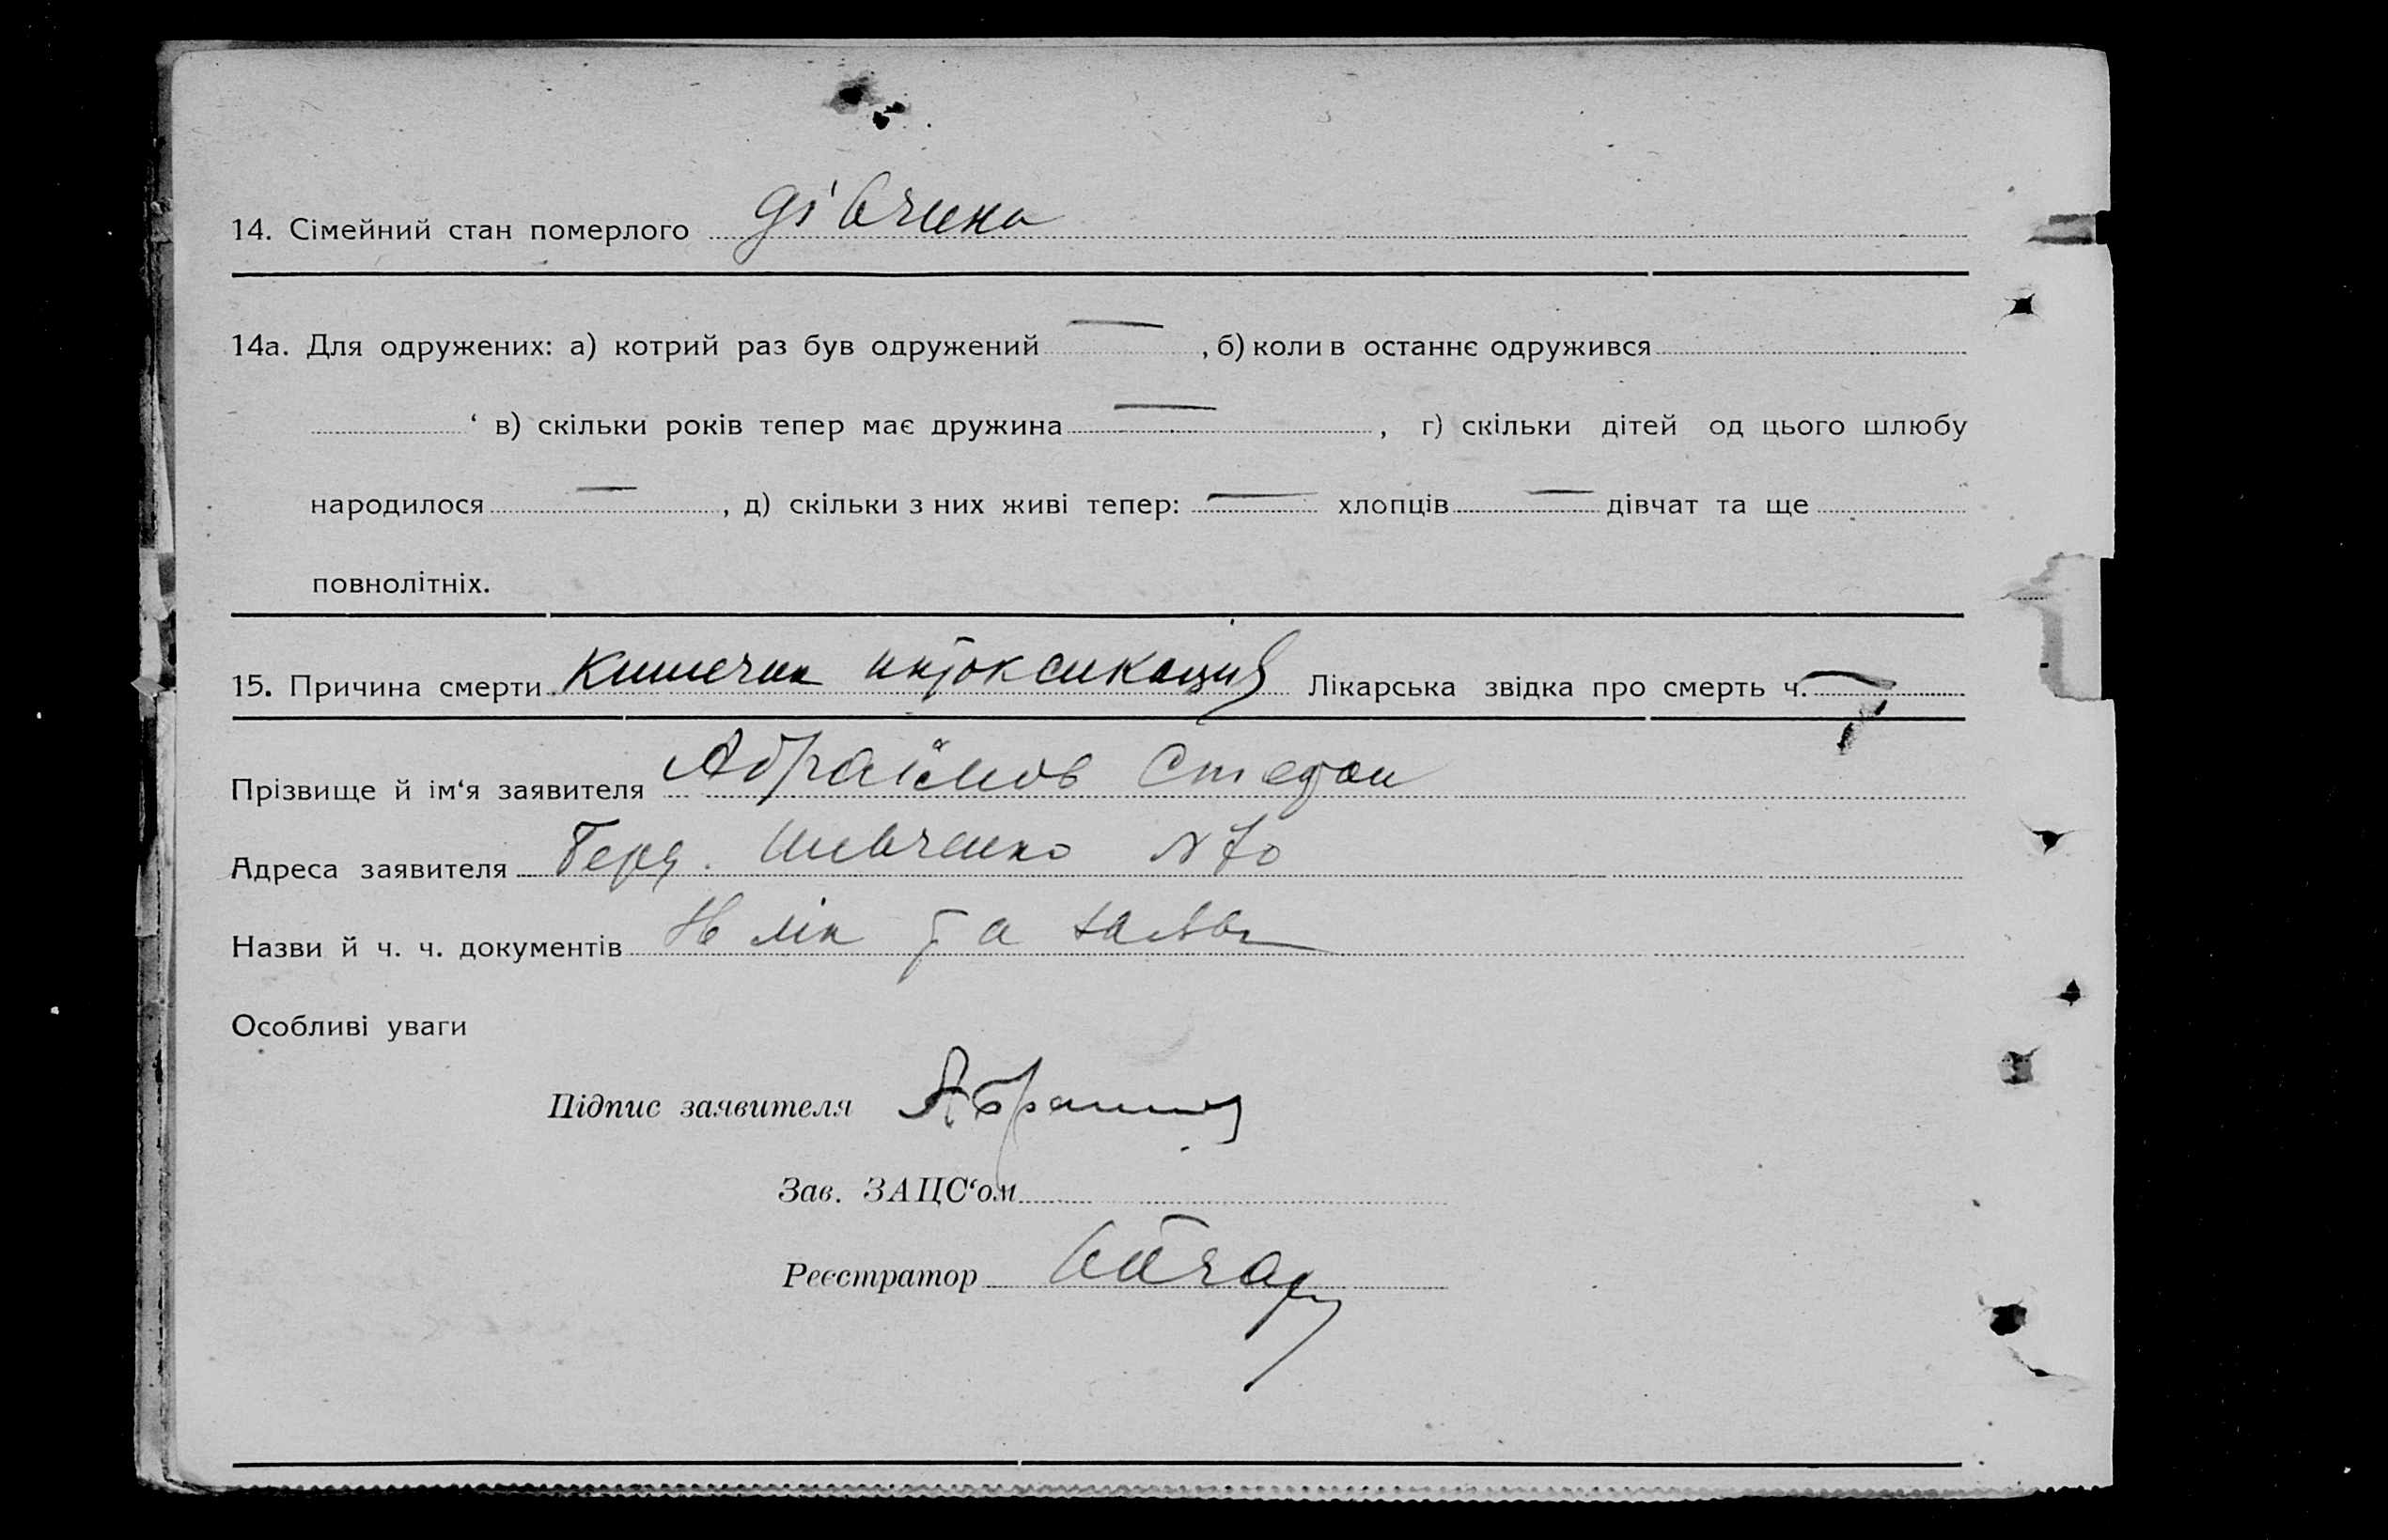 14. Сімейний стан померлого дівчина
14а. Для одружених: а) котрий раз був одружений — , б) коли в останнє одружився
‘ в) скільки років тепер має дружина — , г) скільки дітей од цього шлюбу
народилося — , д) скільки з них живі тепер: — хлопців — дівчат та ще
повнолітніх.
15. Причина смерти Кишечна интоксикация Лікарська звідка про смерть ч. —
Прізвище й ім‘я заявителя Абраїмов Степан
Адреса заявителя Шевченко № 70
Назви й ч. ч. документів та
Особливі уваги
Підпис заявителя
Зав. ЗАЦС‘ом
Реєстратор